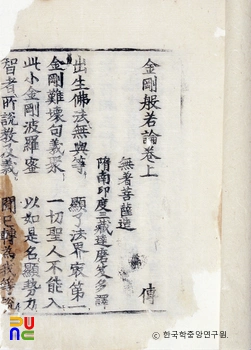 金剛般若論卷上
無著菩薩造
隋南印度三藏達磨笈多譯
出生佛法無與等 顯了法界最第一
金剛難壞句義聚 一切聖人不能入
此小金剛波羅蜜 以如是名顯勢力
智者所說教及義 聞已轉爲我等說
傳
PUNC
© 한국학중앙연구원